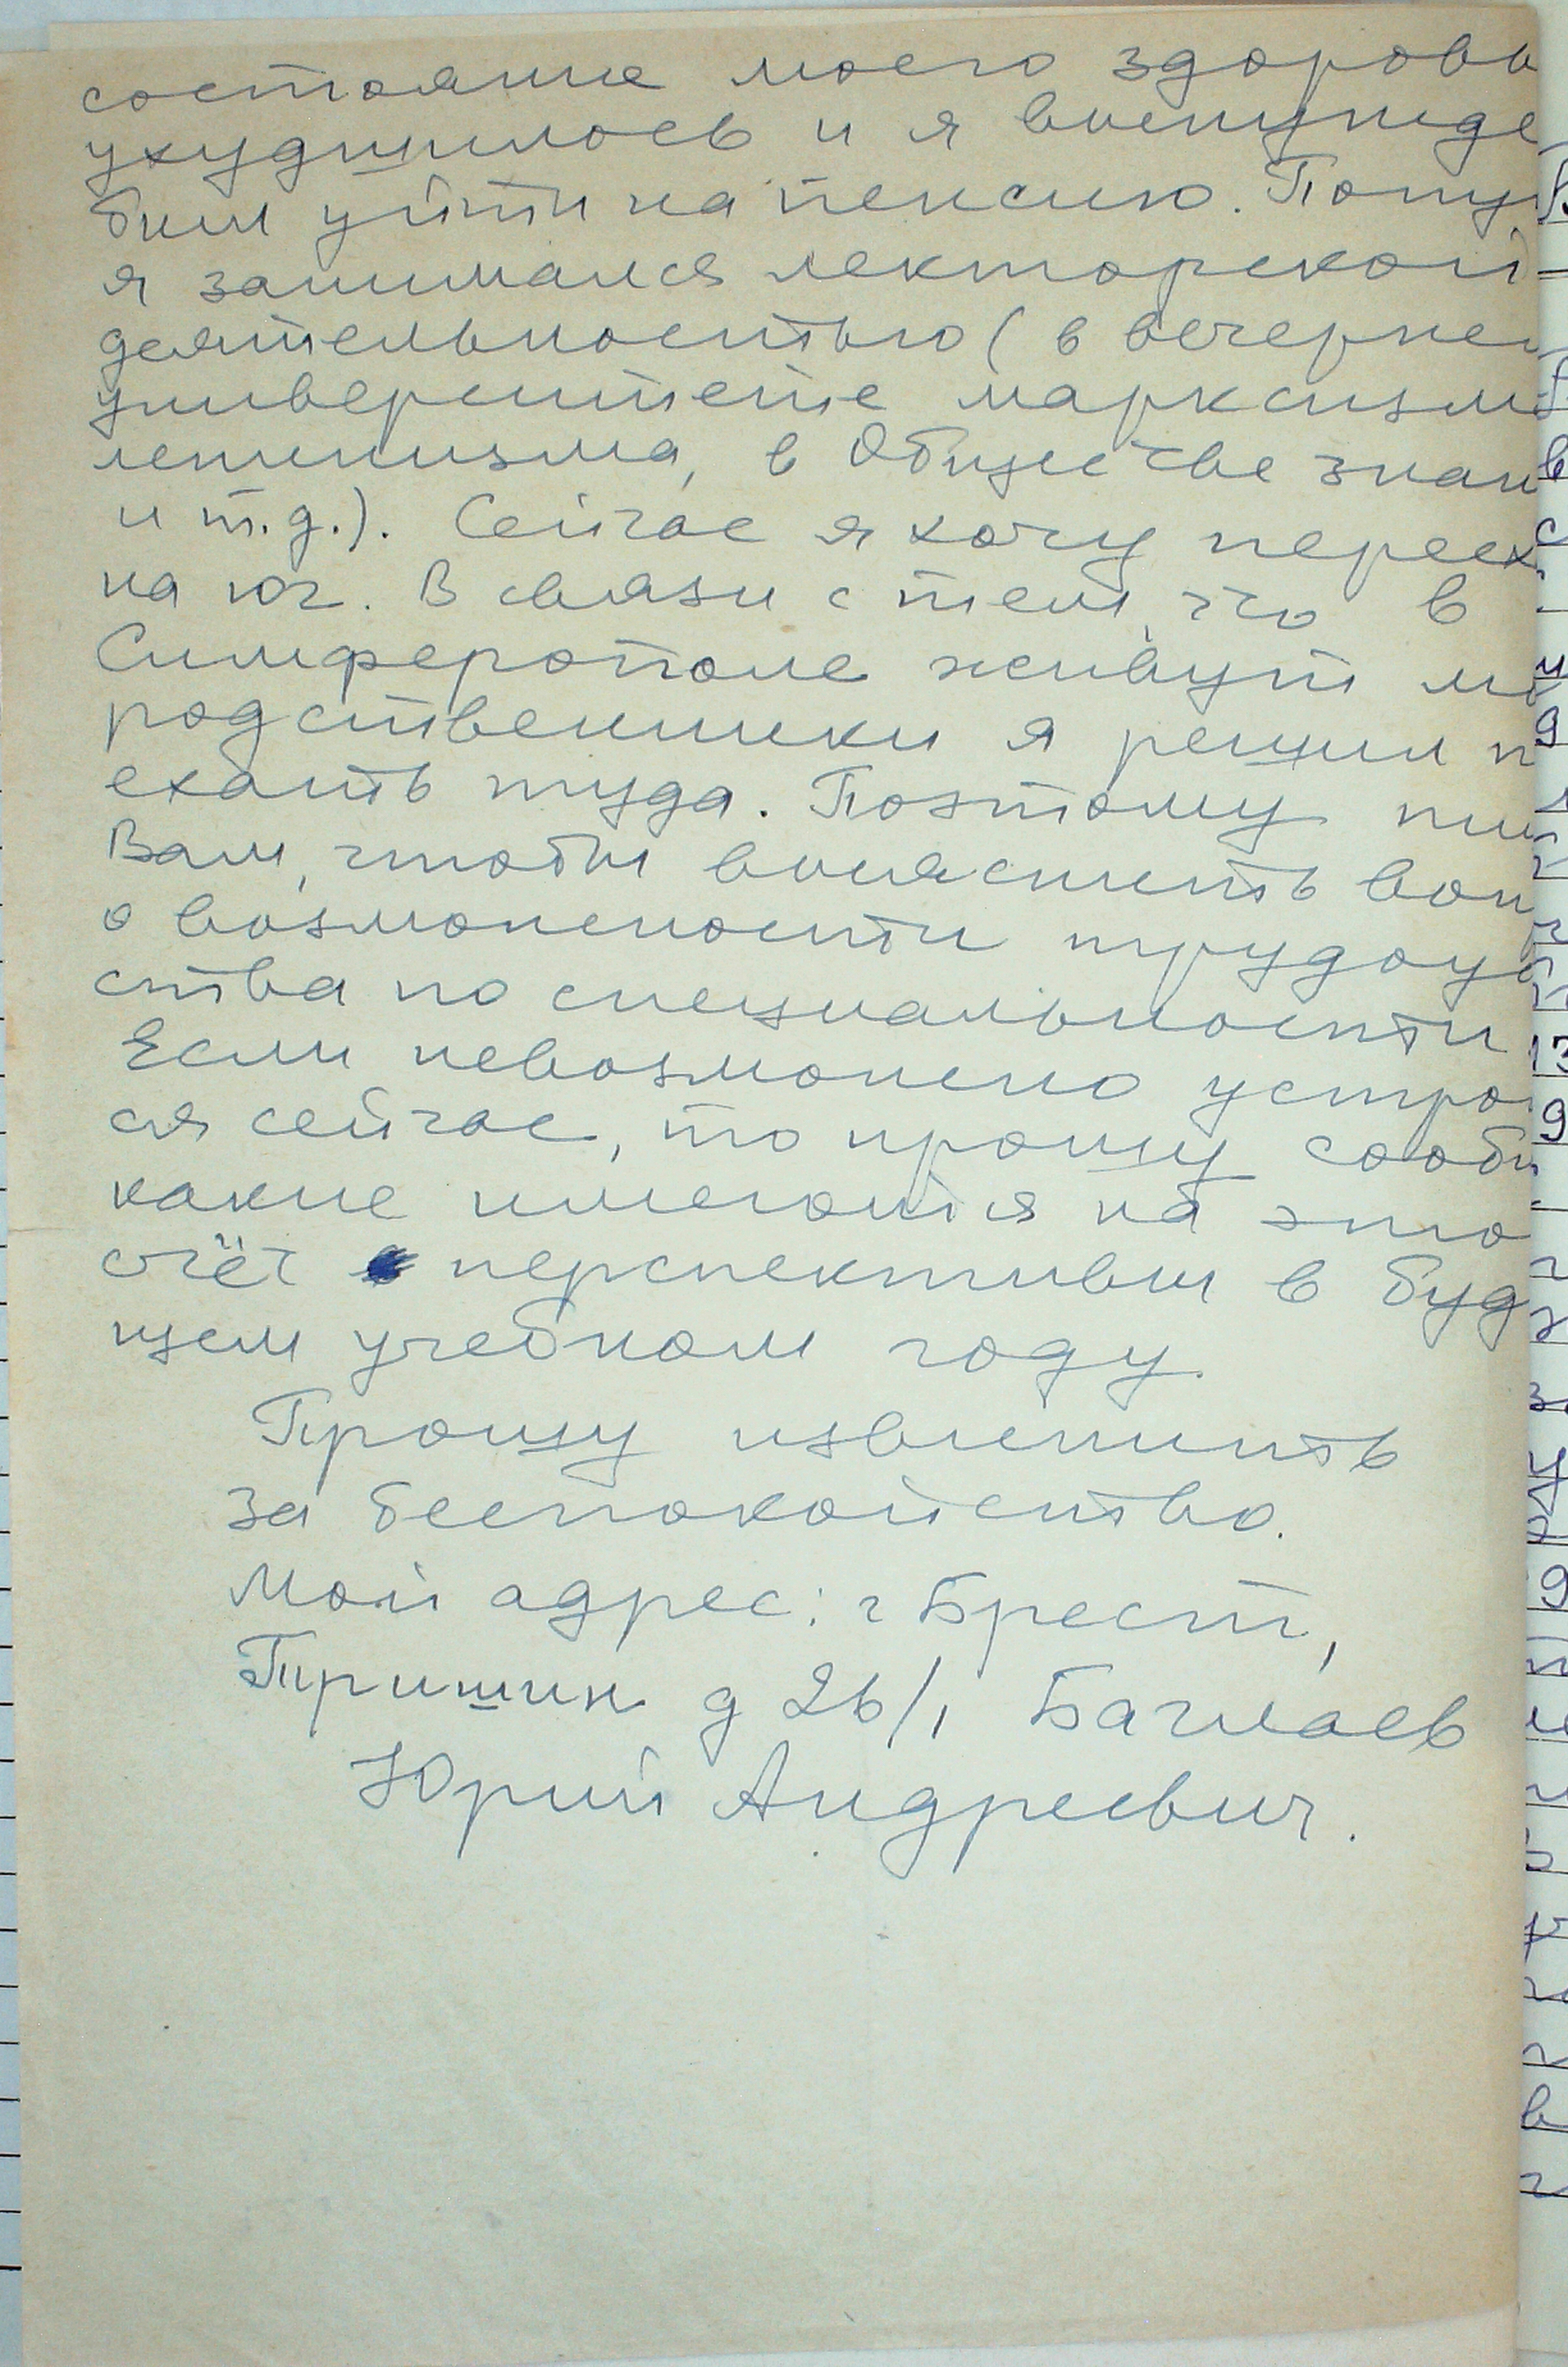 состояние моего здоровь
ухудшилось и я вынужде
был уйти на пенсию. Попу
я занимался лекторской
деятельностью (в вечерне
университете марксизм
ленинизма, в Обществе знан
и т.д.). Сейчас я хочу перее
на юг. В связи с тем, что в
Симферополе живут мо
родственники я решил п
ехать туда. Поэтому пи
Вам, чтобы выяснить воп
о возможности трудоу
ства по специальности
Если невозможно устро
ся сейчас, то прошу сооб
какие имеются на это
счёт перспективы в буд
щем учебном году.
Прошу извинить
за беспокойство.
Мой адрес: г Брест,
Тришин д 26/1 Баглаев
Юрий Андреевич.